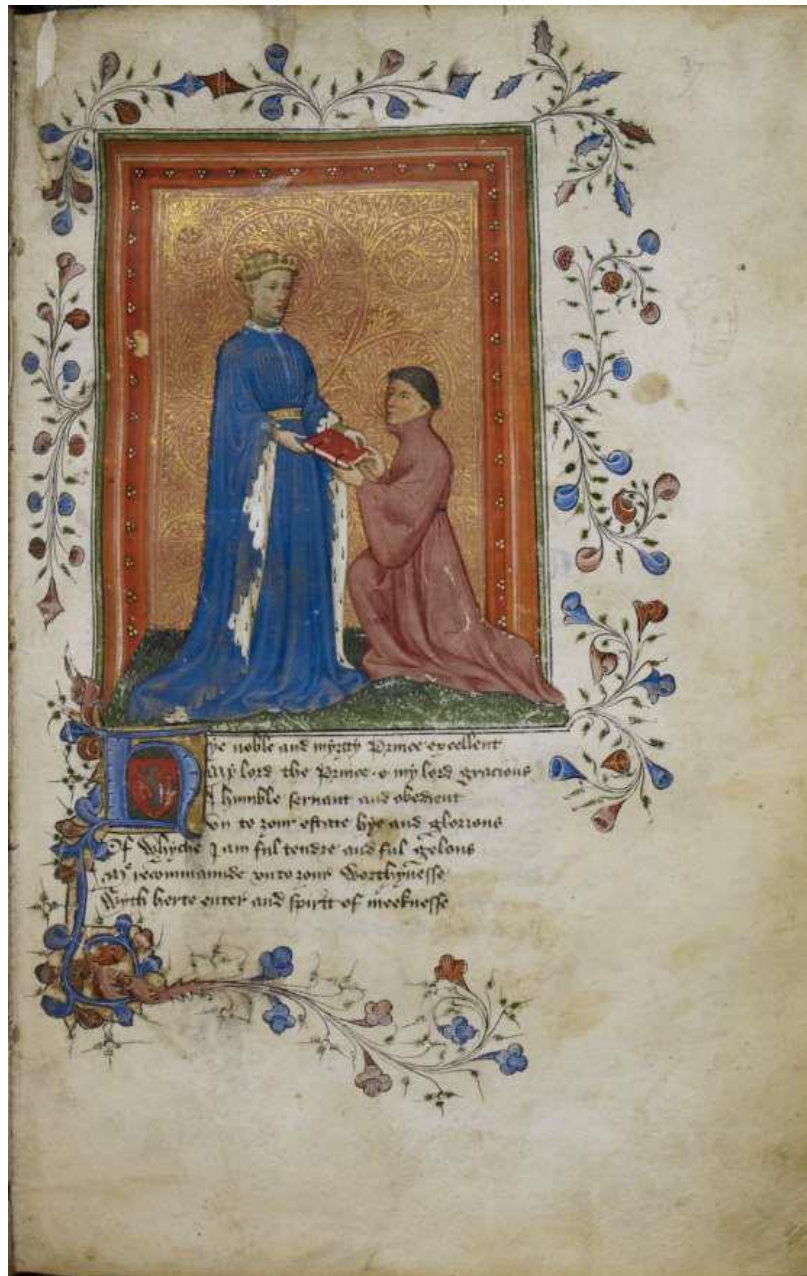 37
Hye noble and myȝtty Prince excellent
My lord the Prince · o my lord gracious
I humble seruant and obedient
Vn to ȝour estate hye and glorious
Of Whyche I am ful tendre and ful gelous
Me recommaunde vnto ȝour Worthynesse
Wyth herte enter and spirit of meeknesse